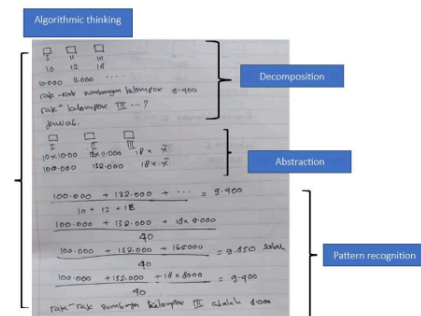 Algorithmic thinking
I II III
10 12 18
10.000 11.000 ....
rata-rata sumbangan kelompok 9.400
rata" kelompok III ...?
Jawab.
Decomposition
I II III
10x10.000 12x11.000 18 x x̄
100.000 132.000 18 x x̄
Abstraction
100.000 + 132.000 + ... = 9.400
10 + 12 + 18
100.000 + 132.000 + 18 x 9.000
40
100.000 + 132.000 + 162000 = 9.850 salah
40
100.000 + 132.000 + 18 x 8000 = 9.400
40
rata-rata sumbangan kelompok III adalah 8.000
Pattern recognition